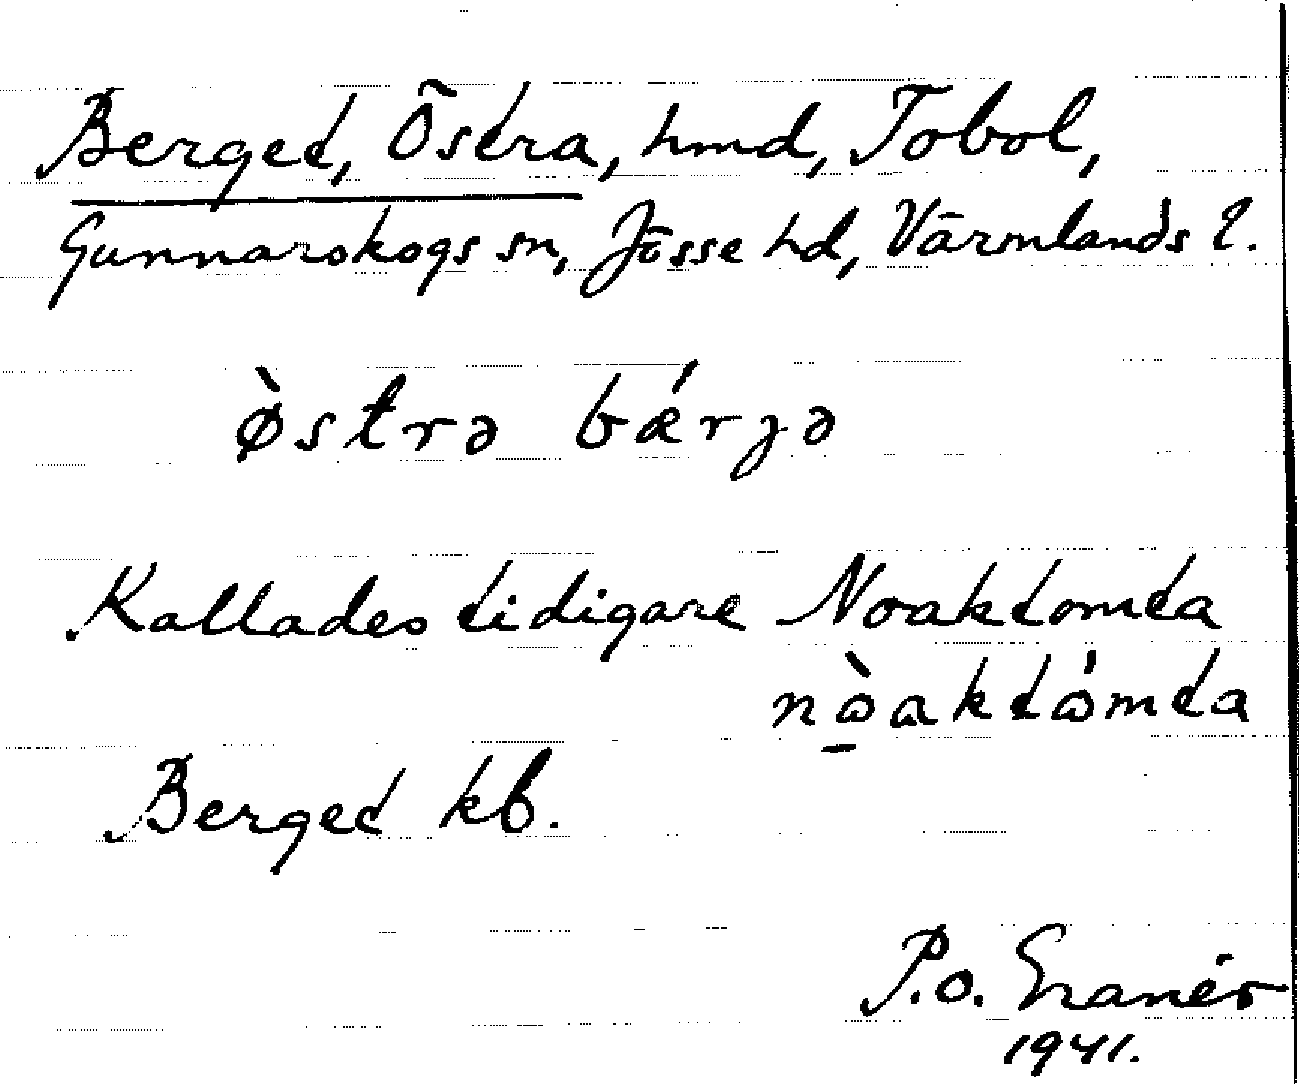 Berget, Östra, hmd, Tobol,
Gunnarskogs sn, Jösse hd, Värmlands l.
ø̀strə bǽrɟə
Kallades tidigare Noaktomta
nɷ̠̀aktɷ́mta
Berget kb.
P.O. Granér
1941.